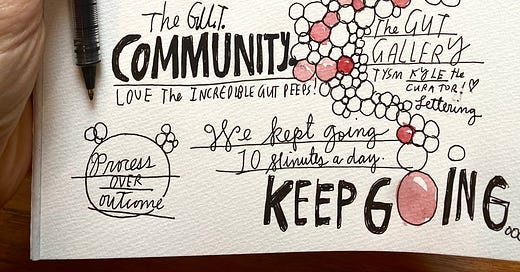 The G.U.T.
COMMUNITY.
LOVE The INCREDIBLE GUT PEEPS!
The GUT
GALLERY
TYSM KYLE the
CURATOR!
Lettering
Process
OVER
outcome
We kept going
10 Minutes a day.
KEEP GOING...